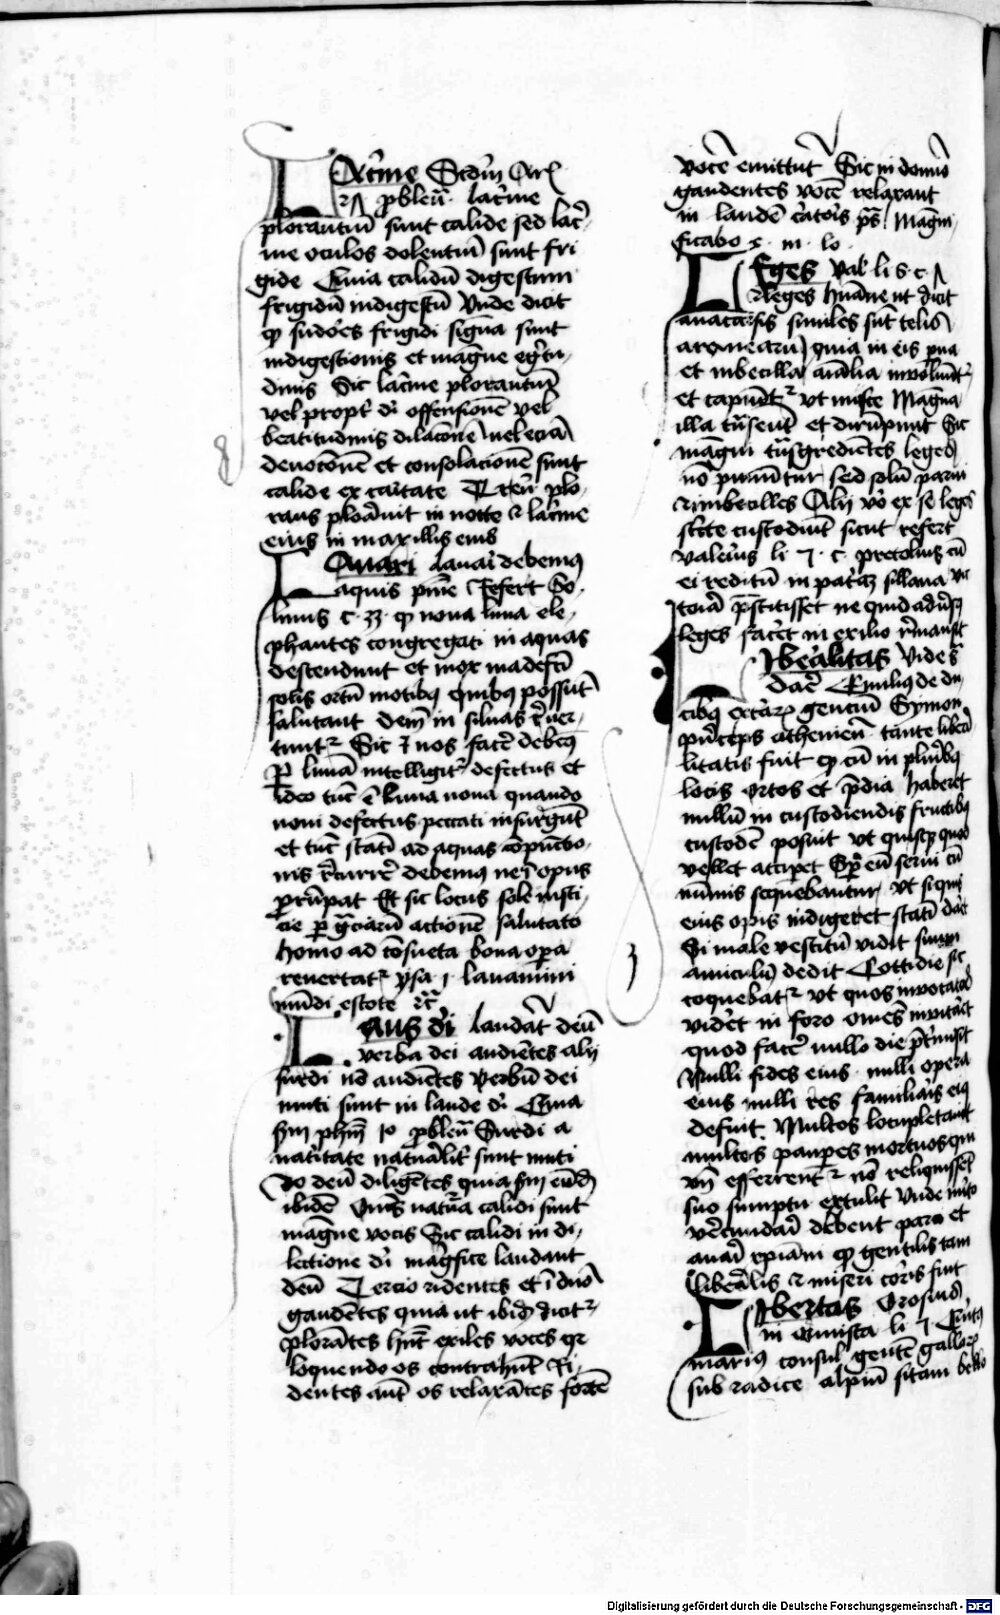 Lacrime Scdm Ar
pbleu. lacrime
plorantium sunt calide sed lacri
me oculos dolentium sunt fri
gide Quia calidum digestum
frigidum indigestum Unde dicit
qp sudores frigidi signa sunt
indigestionis et magne egritu
dinis Sic lacrime plorantium
vel propter di offensionem vel
beatitudinis dilacionem vel etiam
deuocionem et consolacionem sunt
calide ex caritate plo
rans plorauit in nocte et lacrime
eius in maxillis eius
Lauari lauari debemus
aquis refert So
linus c. 33. qp noua luna ele
phantes congregati in aquas
descendunt et mox madefacti
solis ortum motibus quibus possunt
salutant dein in siluas reuer
tuntur Sic et nos facere debemus
Per lunam intelligitur defectus et
ideo tunc est luna noua quando
noui defectus peccati insurgunt
et tunc statim ad aquas compunctio
nis recurrere debemus opus
Et sic locus sole iusti
cie per graciarum actionem salutato
homo ad consueta bona opera
reuertatur ysa 1 lauamini
mundi estote etc
Laus di laudat deum
verba dei audientes alij
surdi non audientes verbum dei
muti sunt in laude di Quia
scdm phm 10 pbleu Surdi a
natiuitate naturaliter sunt muti
deum diligentes quia scdm eundem
ibidem Omnes natura calidi sunt
magne vocis Sic calidi in di
lectione di magnifice laudant
deum Tercio ridentes et in domino
gaudentes quia ut ibidem dicitur
plorantes habent exiles voces qr
loquendo os contrahunt Ri
dentes autem os relaxantes fortem
vocem emittunt Sic in domino
gaudentes vocem relaxant
in laudem creatoris ps Magni
ficabo in lo
Leges Val li 5 c
leges humane ut dicit
anacarsis similes sunt telis
aranearum quia in eis parua
et inbecilla animalia inuoluuntur
et capiuntur ut musce Magna
illa transeunt et dirumpunt Sic
magni transgredientes leges
non puniuntur sed solum parui
et imbecilles Alij vero ex se leges
stricte custodiunt sicut refert
valerius li 7 c pretolius cum
ei reditum in patriam sillana vic
toria prestitisset ne quid aduersus
leges faceret in exilio remansit
Liberalitas Vides
dare Emilius de du
cibus exterarum gencium Symon
princeps atheniensium tante libera
litatis fuit qp cum in pluribus
locis ortos et predia haberet
nullum in custodiendis fructibus
custodem posuit ut quisque quod
vellet acciperet Semper eum serui cum
nummis sequebantur ut siquis
eius opis indigeret statim daret
Si male vestitum vidit suum
amiculum dedit Cottidie sic
coquebatur ut quos inuocatos
videret in foro omnes inuitaret
quod facere nullo die pretermisit
Nulli fides eius nulli opera
eius nulli res familiaris eius
defuit Multos locupletauit
multos pauperes mortuos qui
unde efferrentur non reliquissent
suo sumptu extulit Unde mito
verecundari debent parci et
auari xpiani qp gentilis tam
liberalis et misericors fuit
Libertas Orosius
in ormista li 7 Quintus
marius consul gentem gallorum
sub radice alpium sitam bello